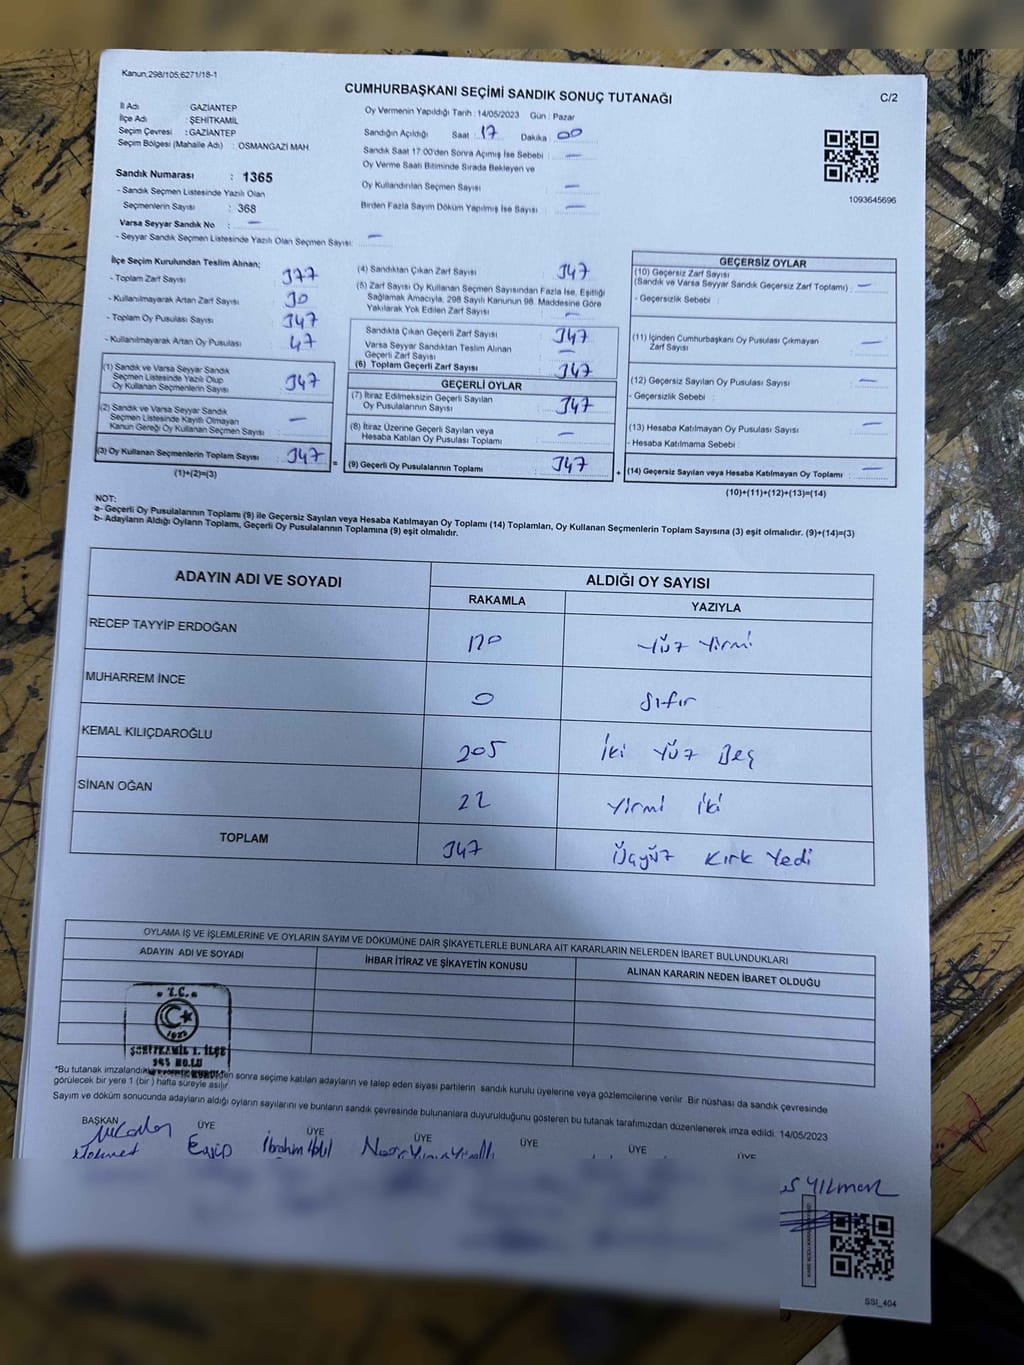 Kanun:298/105;6271/18-1
CUMHURBAŞKANI SEÇİMİ SANDIK SONUÇ TUTANAĞI
C/2
İl Adı : GAZİANTEP
İlçe Adı : ŞEHİTKAMİL
Seçim Çevresi : GAZİANTEP
Seçim Bölgesi (Mahalle Adı) : OSMANGAZİ MAH
Oy Vermenin Yapıldığı Tarih : 14/05/2023 Gün : Pazar
Sandığın Açıldığı Saat : 17 Dakika : 00
Sandık Saat 17:00'den Sonra Açımış İse Sebebi : —
Oy Verme Saati Bitiminde Sırada Bekleyen ve
Oy Kullandırılan Seçmen Sayısı : —
Birden Fazla Sayım Döküm Yapılmış İse Sayısı : —
1093645696
Sandık Numarası : 1365
- Sandık Seçmen Listesinde Yazılı Olan
Seçmenlerin Sayısı : 368
Varsa Seyyar Sandık No : —
- Seyyar Sandık Seçmen Listesinde Yazılı Olan Seçmen Sayısı: —
İlçe Seçim Kurulundan Teslim Alınan;
- Toplam Zarf Sayısı : 377
- Kullanılmayarak Artan Zarf Sayısı : 30
- Toplam Oy Pusulası Sayısı : 347
- Kullanılmayarak Artan Oy Pusulası : 47
(1) Sandık ve Varsa Seyyar Sandık
Seçmen Listesinde Yazılı Olup
Oy Kullanan Seçmenlerin Sayısı : 347
(2) Sandık ve Varsa Seyyar Sandık
Seçmen Listesinde Kayıtlı Olmayan
Kanun Gereği Oy Kullanan Seçmen Sayısı : —
(3) Oy Kullanan Seçmenlerin Toplam Sayısı : 347
(1)+(2)=(3)
(4) Sandıktan Çıkan Zarf Sayısı : 347
(5) Zarf Sayısı Oy Kullanan Seçmen Sayısından Fazla İse, Eşitliği
Sağlamak Amacıyla, 298 Sayılı Kanunun 98. Maddesine Göre
Yakılarak Yok Edilen Zarf Sayısı : —
Sandıkta Çıkan Geçerli Zarf Sayısı : 347
Varsa Seyyar Sandıktan Teslim Alınan
Geçerli Zarf Sayısı : —
(6) Toplam Geçerli Zarf Sayısı : 347
GEÇERLİ OYLAR
(7) İtiraz Edilmeksizin Geçerli Sayılan
Oy Pusulalarının Sayısı : 347
(8) İtiraz Üzerine Geçerli Sayılan veya
Hesaba Katılan Oy Pusulası Toplamı : —
(9) Geçerli Oy Pusulalarının Toplamı : 347
GEÇERSİZ OYLAR
(10) Geçersiz Zarf Sayısı
(Sandık ve Varsa Seyyar Sandık Geçersiz Zarf Toplamı) : —
- Geçersizlik Sebebi :
(11) İçinden Cumhurbaşkanı Oy Pusulası Çıkmayan
Zarf Sayısı : —
(12) Geçersiz Sayılan Oy Pusulası Sayısı : —
- Geçersizlik Sebebi :
(13) Hesaba Katılmayan Oy Pusulası Sayısı : —
- Hesaba Katılmama Sebebi :
(14) Geçersiz Sayılan veya Hesaba Katılmayan Oy Toplamı : —
(10)+(11)+(12)+(13)=(14)
NOT:
a- Geçerli Oy Pusulalarının Toplamı (9) ile Geçersiz Sayılan veya Hesaba Katılmayan Oy Toplamı (14) Toplamları, Oy Kullanan Seçmenlerin Toplam Sayısına (3) eşit olmalıdır. (9)+(14)=(3)
b- Adayların Aldığı Oyların Toplamı, Geçerli Oy Pusulalarının Toplamına (9) eşit olmalıdır.
ADAYIN ADI VE SOYADI
ALDIĞI OY SAYISI
RAKAMLA YAZIYLA
RECEP TAYYİP ERDOĞAN 120 Yüz Yirmi
MUHARREM İNCE 0 Sıfır
KEMAL KILIÇDAROĞLU 205 İki Yüz Beş
SİNAN OĞAN 22 Yirmi İki
TOPLAM 347 Üçyüz Kırk Yedi
OYLAMA İŞ VE İŞLEMLERİNE VE OYLARIN SAYIM VE DÖKÜMÜNE DAİR ŞİKAYETLERLE BUNLARA AİT KARARLARIN NELERDEN İBARET BULUNDUKLARI
ADAYIN ADI VE SOYADI İHBAR İTİRAZ VE ŞİKAYETİN KONUSU ALINAN KARARIN NEDEN İBARET OLDUĞU
T.C.
1923
ŞEHİTKAMİL 1. İLÇE
*Bu tutanak imzalandık sonra seçime katılan adayların ve talep eden siyasi partilerin sandık kurulu üyelerine veya gözlemcilerine verilir. Bir nüshası da sandık çevresinde
görülecek bir yere 1 (bir) hafta süreyle asılır.
Sayım ve döküm sonucunda adayların aldığı oyların sayılarını ve bunların sandık çevresinde bulunanlara duyurulduğunu gösteren bu tutanak tarafımızdan düzenlenerek imza edildi. 14/05/2023
BAŞKAN ÜYE ÜYE ÜYE ÜYE ÜYE ÜYE
Mehmet Eyüp İbrahim
Yılmaz
SSI_404